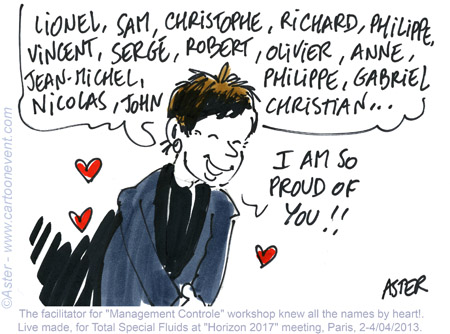 LIONEL, SAM, CHRISTOPHE, RICHARD, PHILIPPE,
VINCENT, SERGE, ROBERT, OLIVIER, ANNE,
JEAN-MICHEL, PHILIPPE, GABRIEL
NICOLAS, JOHN CHRISTIAN...
I AM SO
PROUD OF
YOU!!
ASTER
©Aster - www.cartoonevent.com
The facilitator for "Management Controle" workshop knew all the names by heart!.
Live made, for Total Special Fluids at "Horizon 2017" meeting, Paris, 2-4/04/2013.